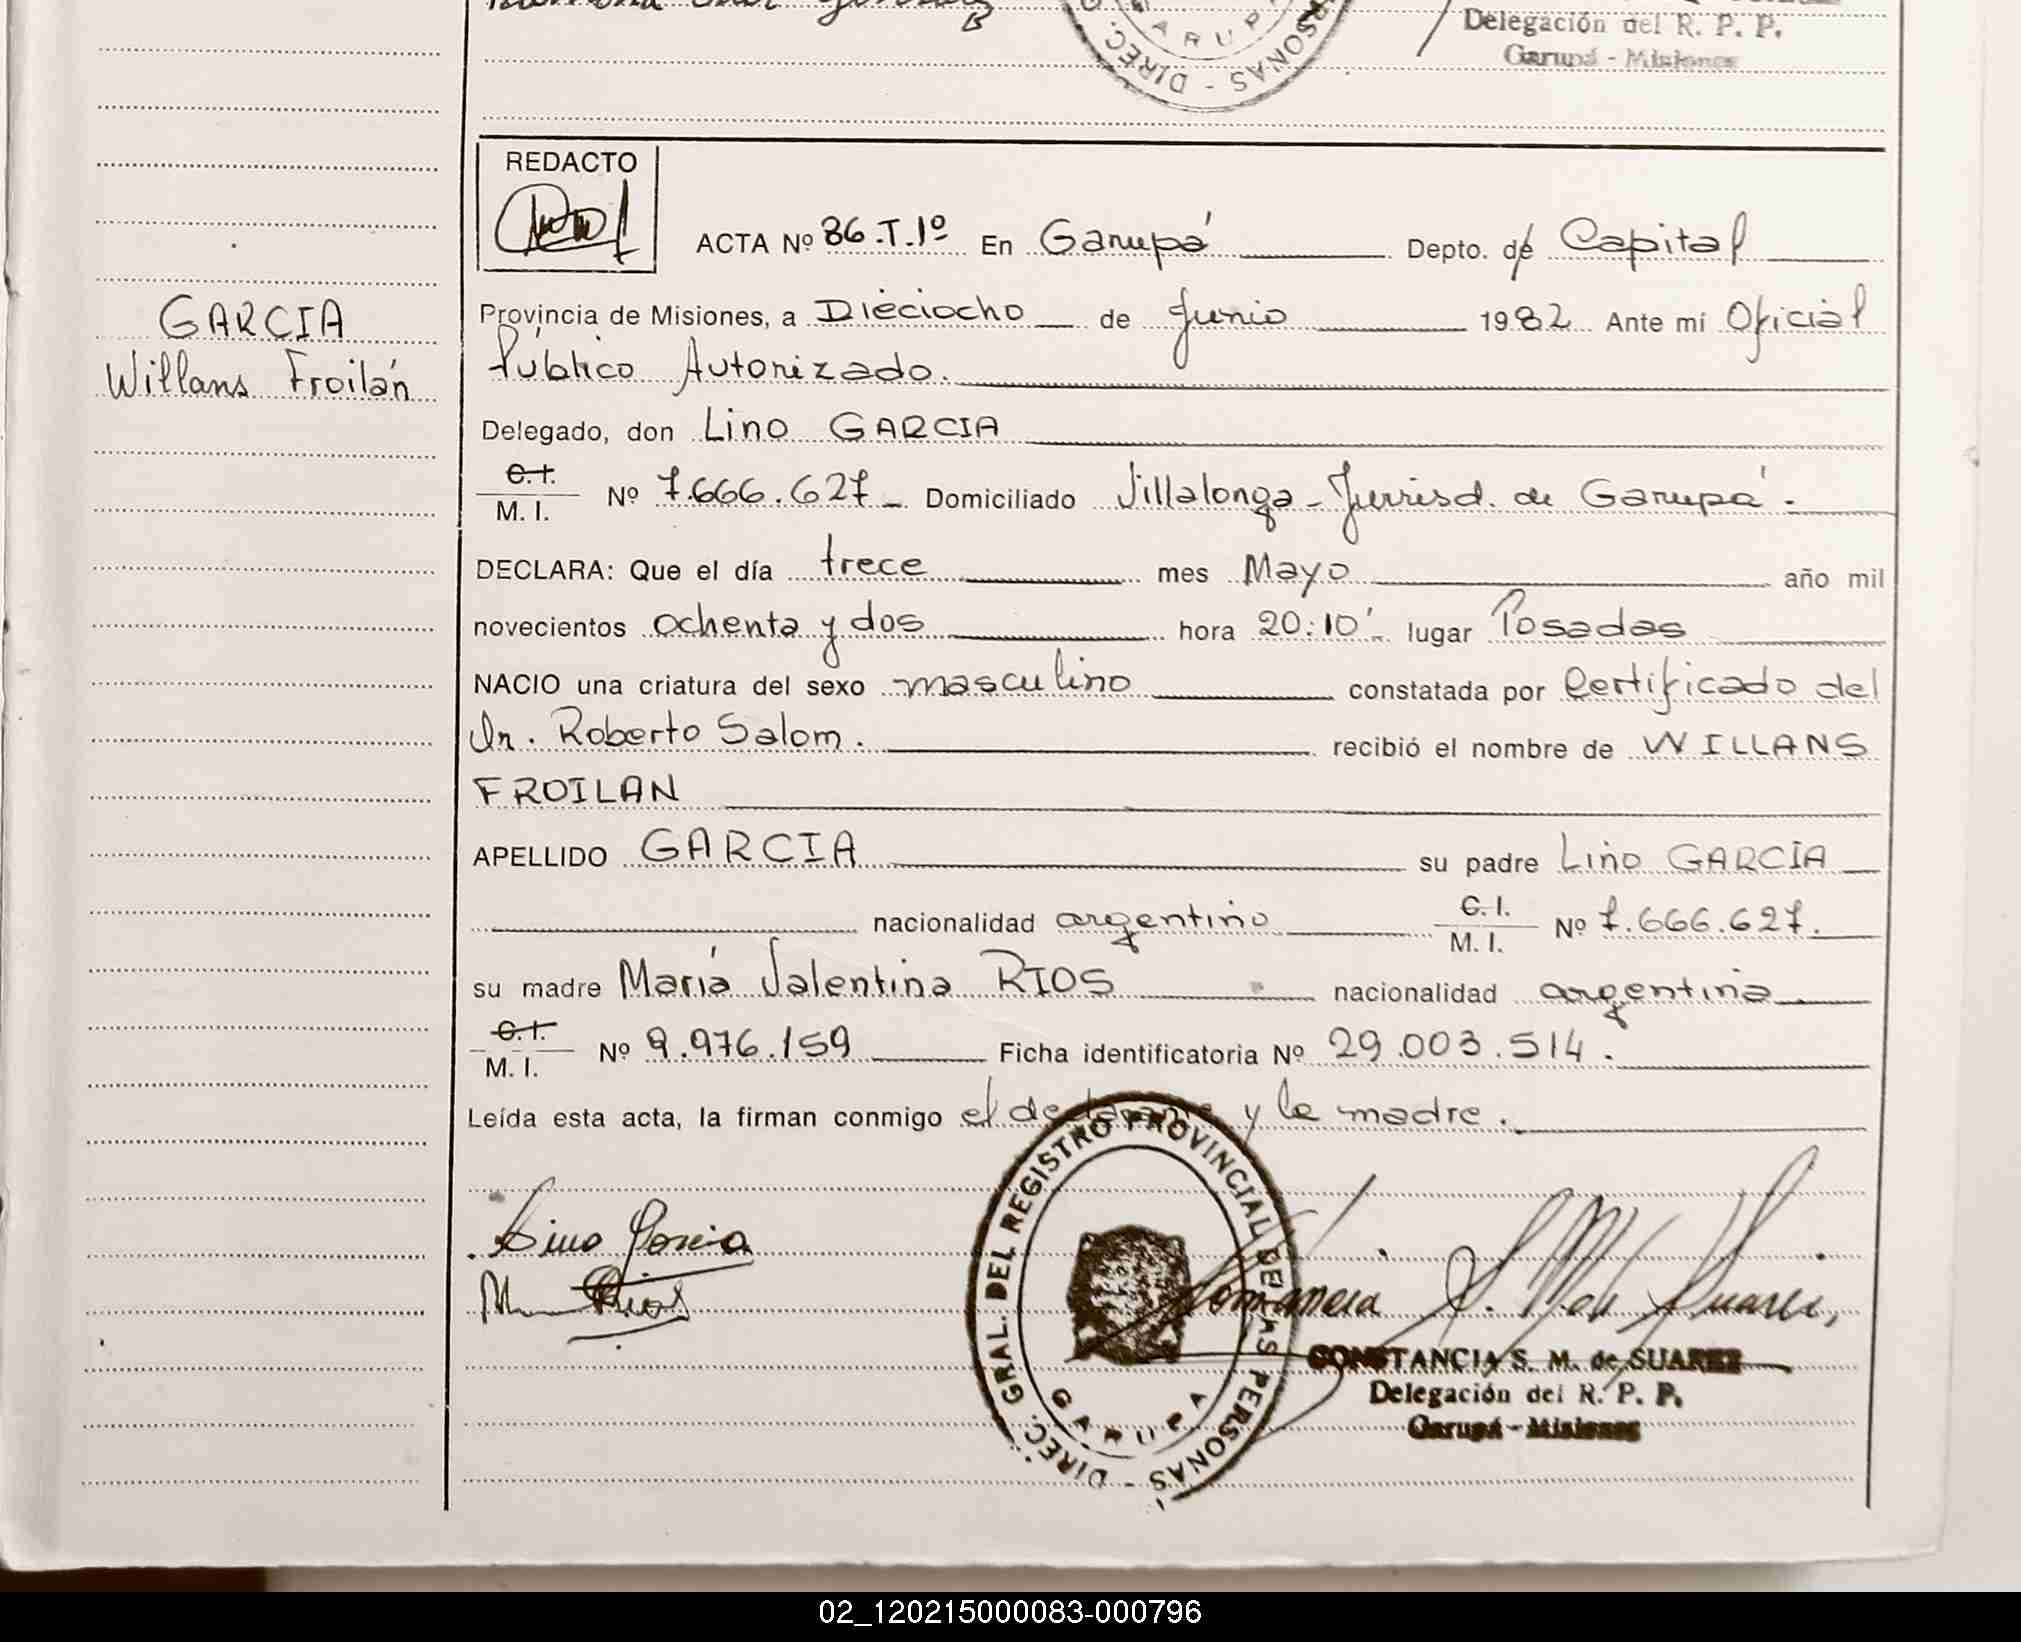 Delegación del R. P. P.
Garupá - Misiones
REDACTO
ACTA Nº 86.T.1º En Garupá Depto. de Capital
GARCIA
Willans Froilán
Provincia de Misiones, a Dieciocho de Junio 1982 Ante mí Oficial
Público Autorizado.
Delegado, don Lino GARCIA
C.I.
M. I. Nº 7.666.627 Domiciliado Villalonga - Jurisd. de Garupá.
DECLARA: Que el día trece mes Mayo año mil
novecientos ochenta y dos hora 20:10' lugar Posadas
NACIO una criatura del sexo masculino constatada por Certificado del
Dr. Roberto Salom. recibió el nombre de WILLANS
FROILAN
APELLIDO GARCIA su padre Lino GARCIA
nacionalidad argentino C.I. M. I. Nº 7.666.627.
su madre María Valentina RIOS nacionalidad argentina
C.I.
M. I. Nº 9.976.159 Ficha identificatoria Nº 29.003.514.
Leída esta acta, la firman conmigo el declarante y la madre.
Lino Garcia
M Rios
DIREC. GRAL. DEL REGISTRO PROVINCIAL DE LAS PERSONAS - GARUPA
Constancia S. M. de Suarez
CONSTANCIA S. M. de SUAREZ
Delegación del R. P. P.
Garupá - Misiones
02_120215000083-000796